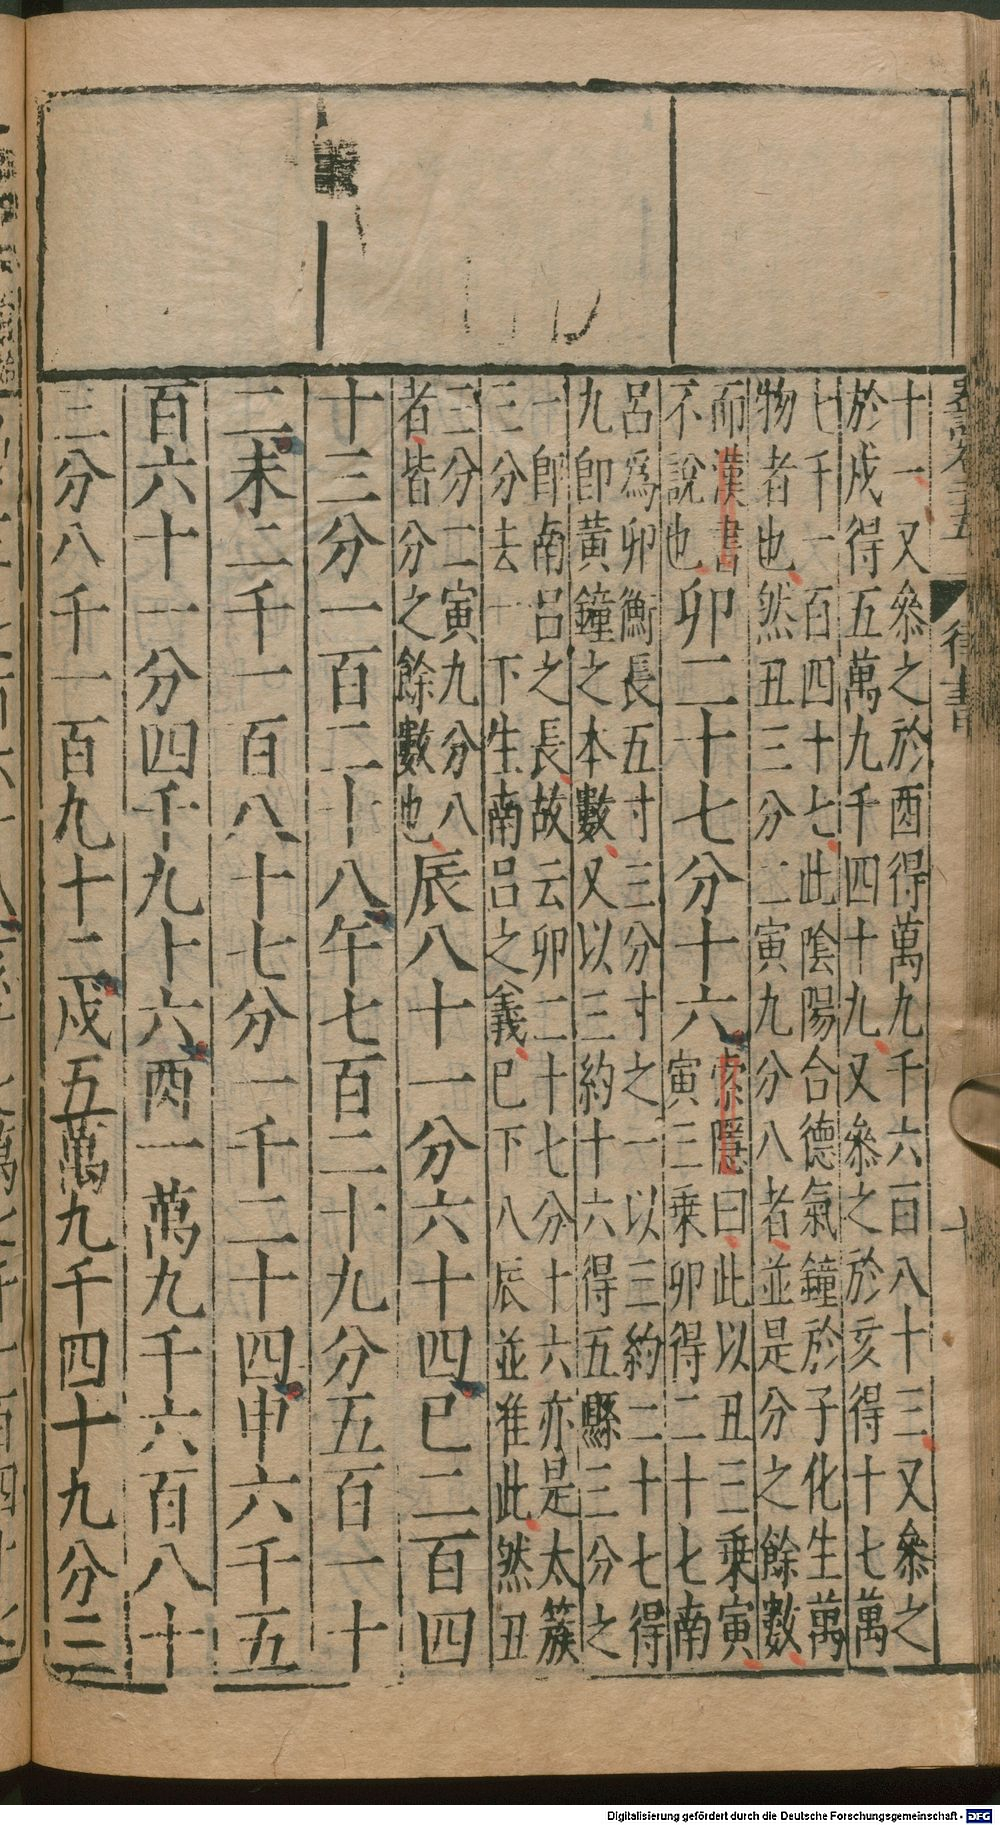 十一又叅之於酉得萬九千六百八十三又叅之
於戌得五萬九千四十九又叅之於亥得十七萬
七千一百四十七此陰陽合德氣鐘於子化生萬
物者也然丑三分二寅九分八者並是分之餘數
而漢書
不說也
卯二十七分十六
索隱曰此以丑三乘寅
寅三乘卯得二十七南
呂爲卯衡長五寸三分寸之一以三約二十七得
九卽黃鐘之本數又以三約十六得五縣三分之
一卽南呂之長故云卯二十七分十六亦是太簇
三分去一下生南呂之義巳下八辰並准此然丑
三分二寅九分八
者皆分之餘數也
辰八十一分六十四巳二百四
十三分一百二十八午七百二十九分五百一十
二未二千一百八十七分一千二十四申六千五
百六十一分四千九十六酉一萬九千六百八十
三分八千一百九十二戌五萬九千四十九分三
律書
Digitalisierung gefördert durch die Deutsche Forschungsgemeinschaft - DFG